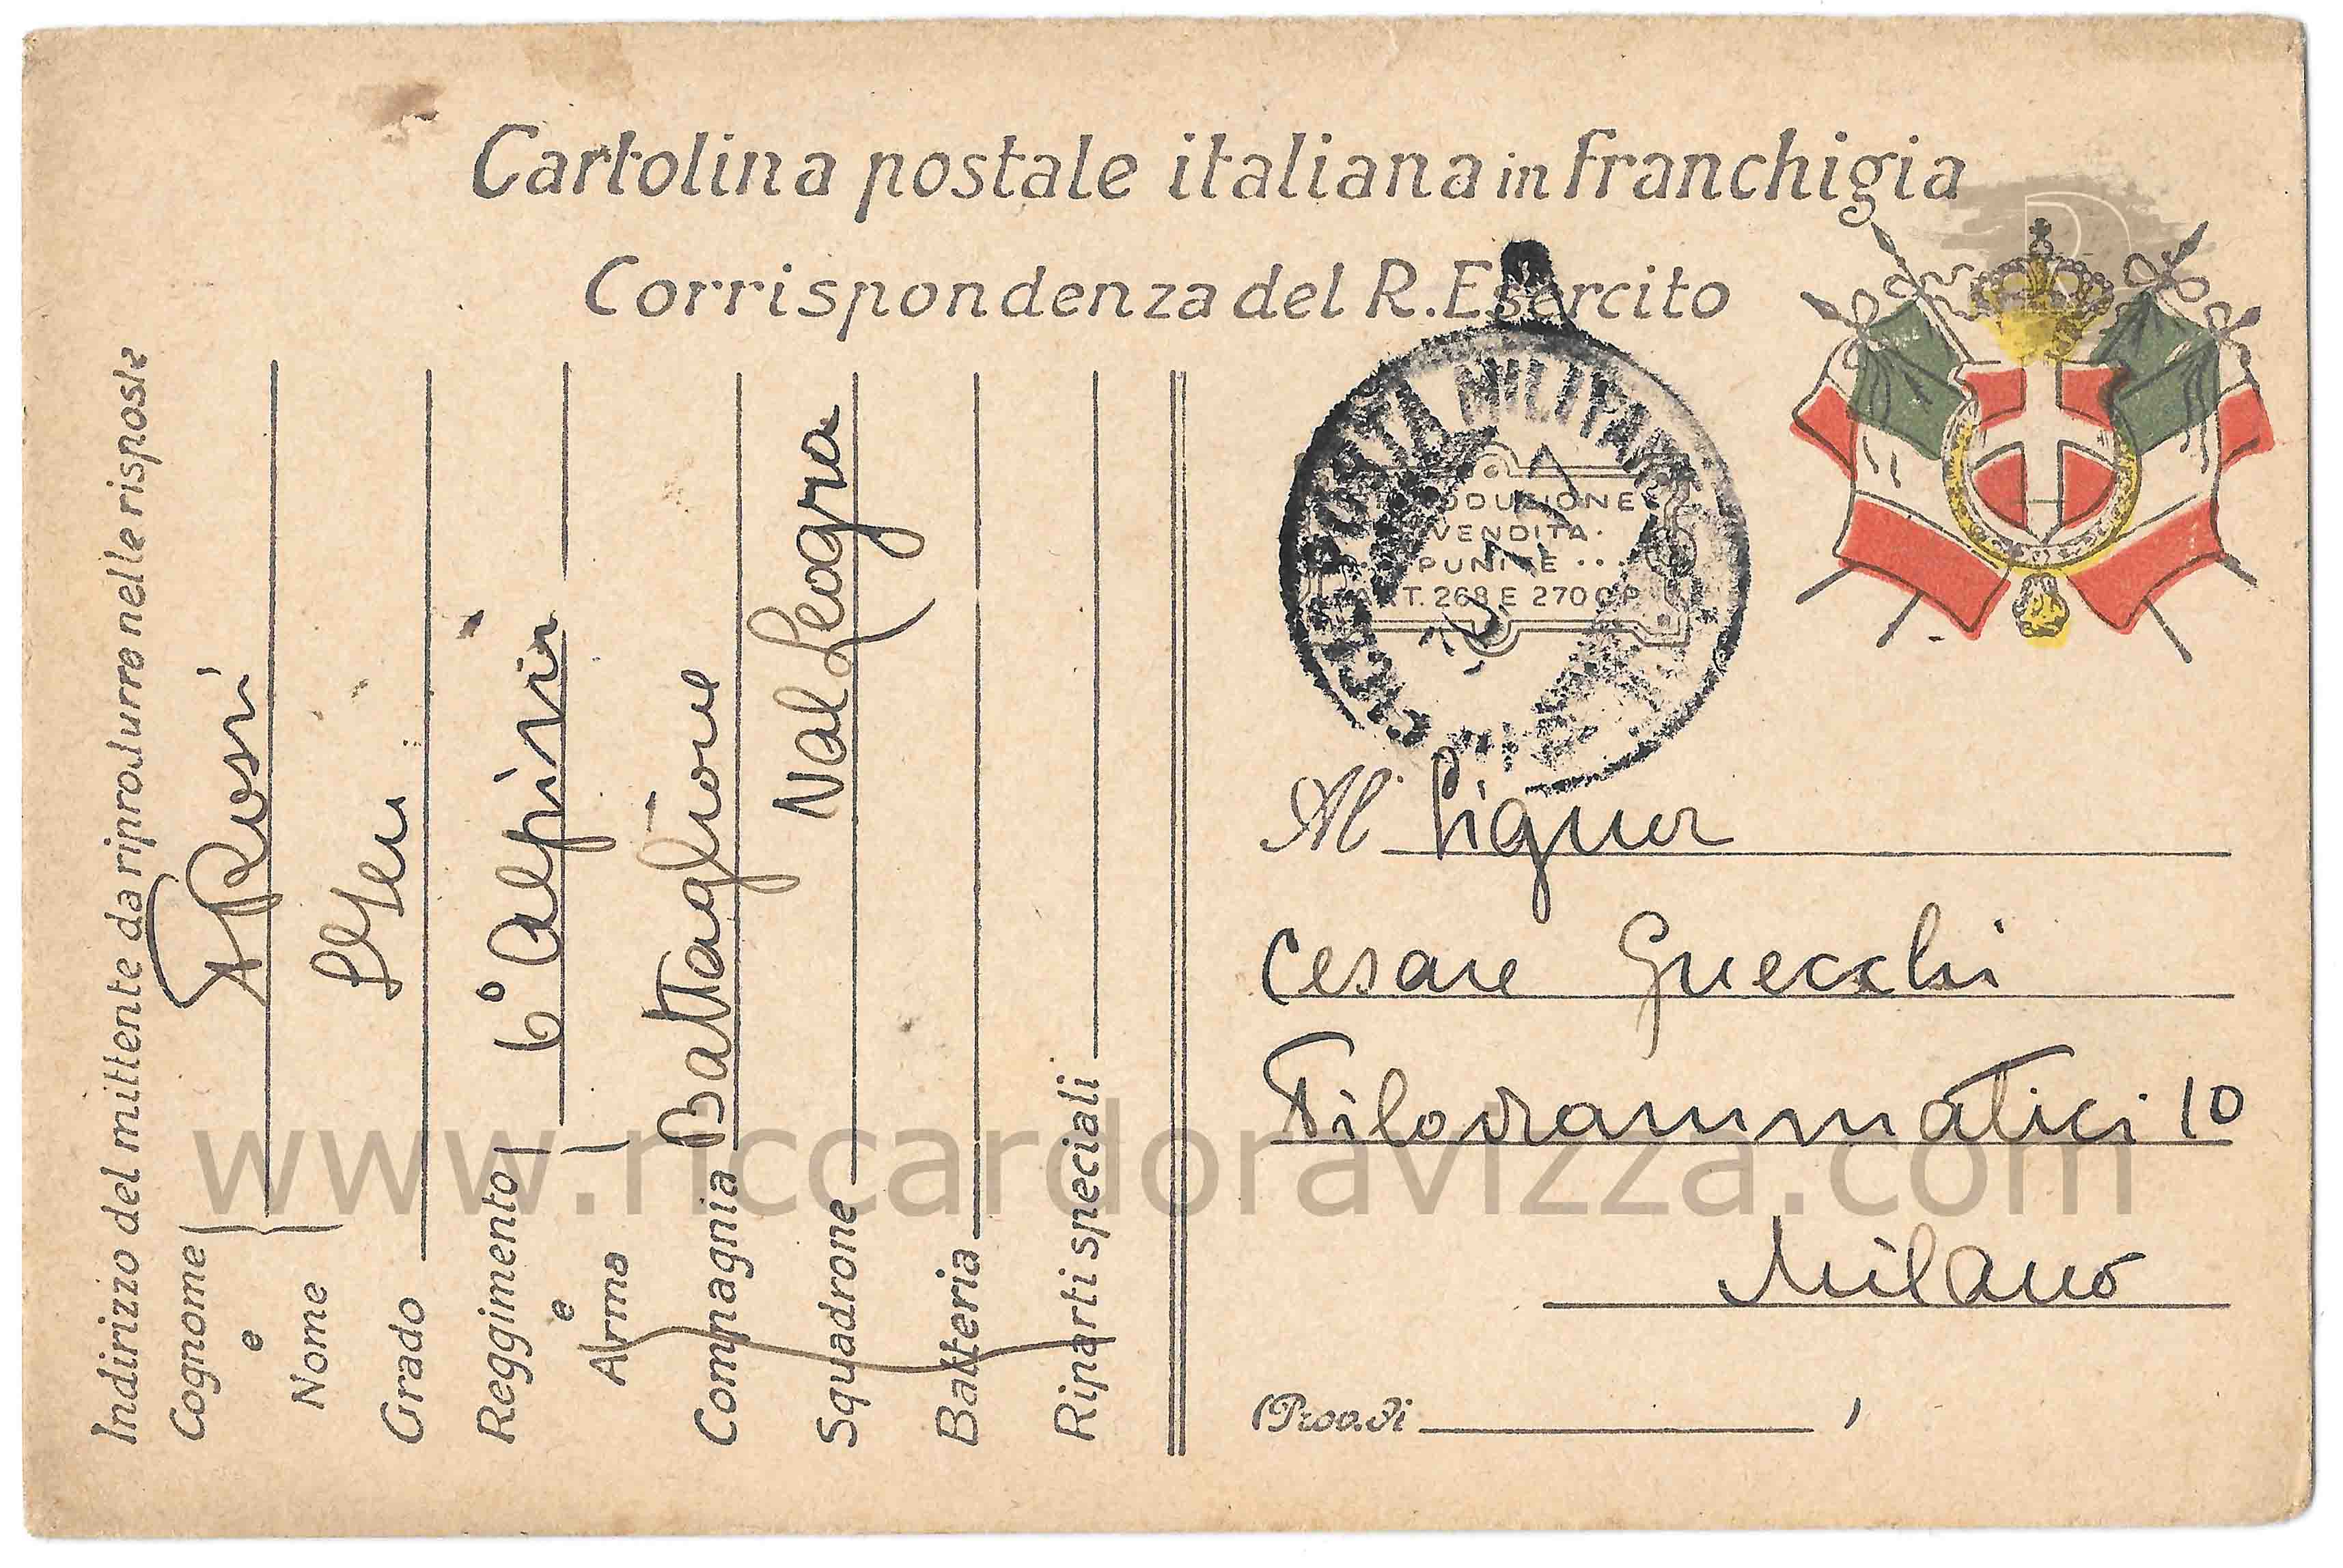 Cartolina postale italiana in franchigia
Corrispondenza del R. Esercito
Indirizzo del mittente da riprodurre nelle risposte
Cognome e Nome
Rossi
Grado
Reggimento e Arma
6° Alpini
Compagnia
Battaglione
Squadrone
Val Leogra
Batteria
Riparti speciali
POSTA MILITARE
ODUZIONE
VENDITA
PUNITE ...
ART. 268 E 270 C.P.
Al Signor
Cesare
Filodrammatici 10
Milano
(Prov. di )
www.riccardoravizza.com